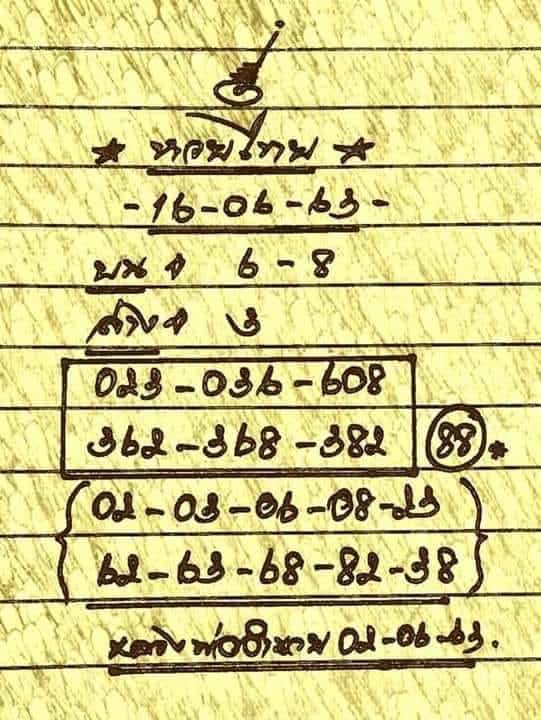 ★ หวยไทย ★
-16-06-63-
บน → 6 - 8
ล่าง → 3
023 - 036 - 608
362 - 368 - 382 88 *
02 - 03 - 06 - 08 - 23
62 - 63 - 68 - 82 - 38
หลวงพ่อ 02-06-63.